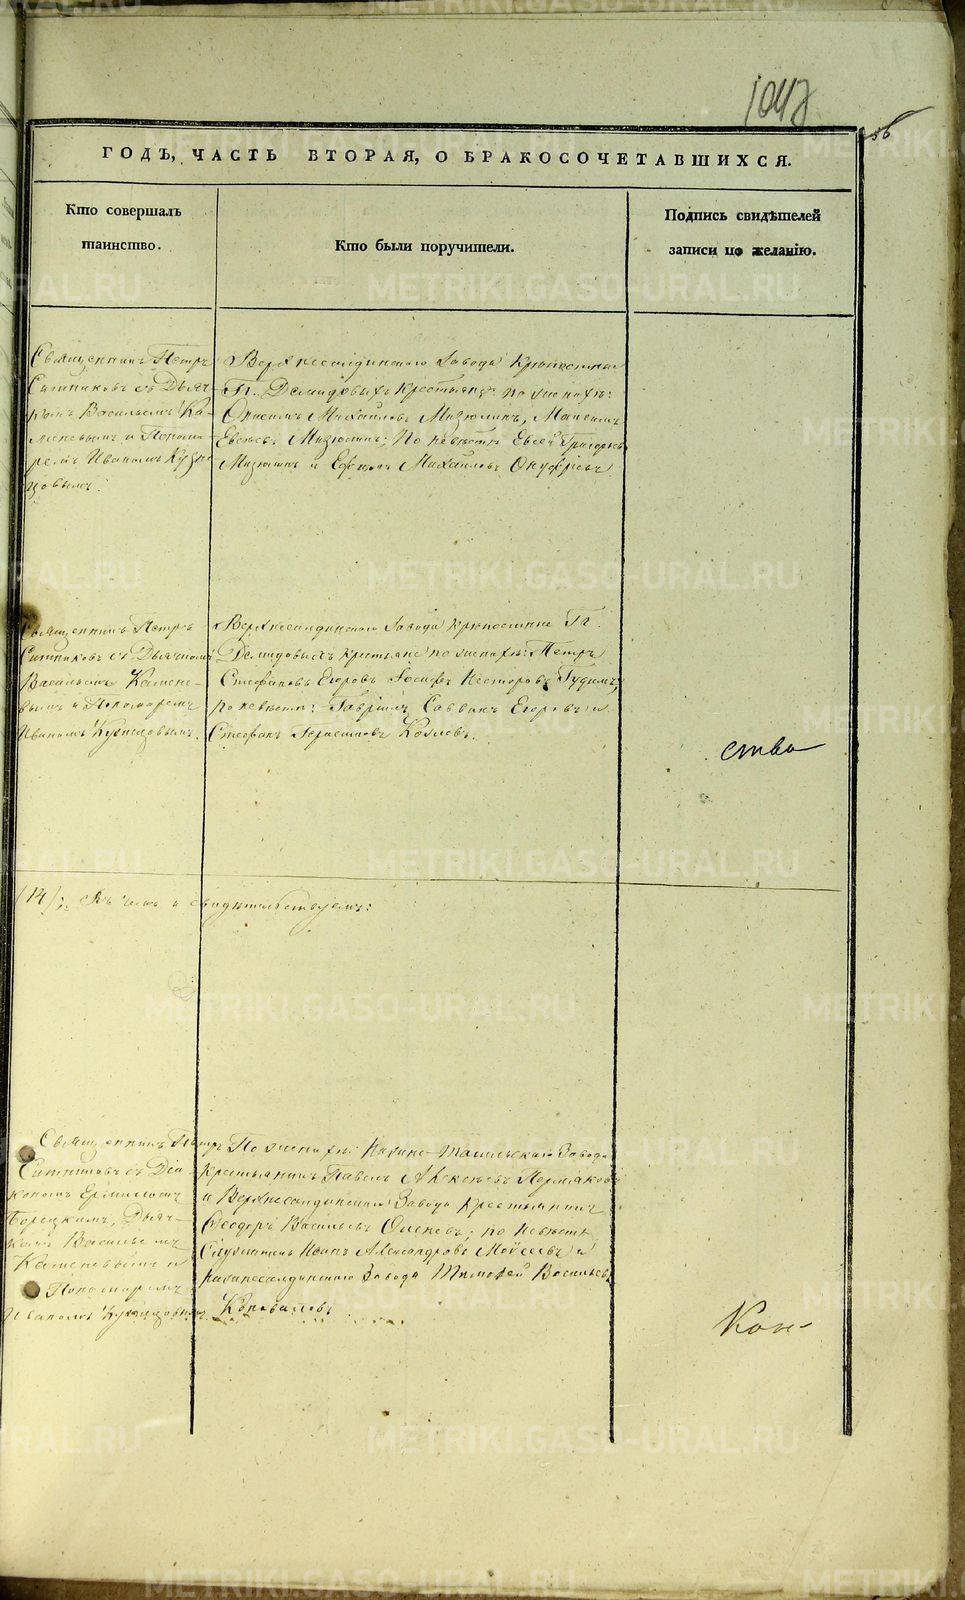 1048
56
ГОДЪ, ЧАСТЬ ВТОРАЯ, О БРАКОСОЧЕТАВШИХСЯ.
Кто совершалъ
таинство.
Кто были поручители.
Подпись свидѣтелей
записи по желанію.
Священникъ Петръ
Ситниковъ съ Дьяч-
комъ Васильемъ Ка-
меневымъ и Понома-
ремъ Иваномъ Кузне-
цовымъ.
Верхнесалдинскаго Завода крѣпостные
Гг. Демидовыхъ крестьяне по женихѣ:
Михайловъ Мизюлинъ, Максимъ
Евсѣевъ; По невѣстѣ Евсей Григорьевъ
и Ефимъ Михайловъ Онуфріевъ
Священникъ Петръ
Ситниковъ съ Дьячкомъ
Васильемъ Камене-
вымъ и Пономаремъ
Иваномъ Кузнецовымъ.
Верхнесалдинскаго Завода крѣпостные Гг.
Демидовыхъ крестьяне по женихѣ: Петръ
Стефановъ Егоровъ Іосифъ Несторовъ Гудинъ;
по невѣстѣ: Гавріилъ Саввинъ Егоровъ и
Стефанъ Козловъ.
ство
(14); Въ чемъ и свидѣтельствуемъ:
Священникъ Петръ
Ситниковъ съ Діа-
кономъ
Борецкимъ, Дьяч-
комъ Васильемъ
Каменевымъ и
Пономаремъ
Иваномъ Кузнецовымъ
По женихѣ: Нижне-Тагильскаго Завода
крестьянинъ Павелъ Алексѣевъ Пермяковъ
и Верхнесалдинскаго Завода крестьянинъ
Ѳеодоръ Васильевъ Оленевъ; по невѣстѣ
Иванъ Александровъ Моисеевъ и
нижнесалдинскаго Завода Тимофей Васильевъ
Коноваловъ.
Кон-
METRIKI.GASO-URAL.RU